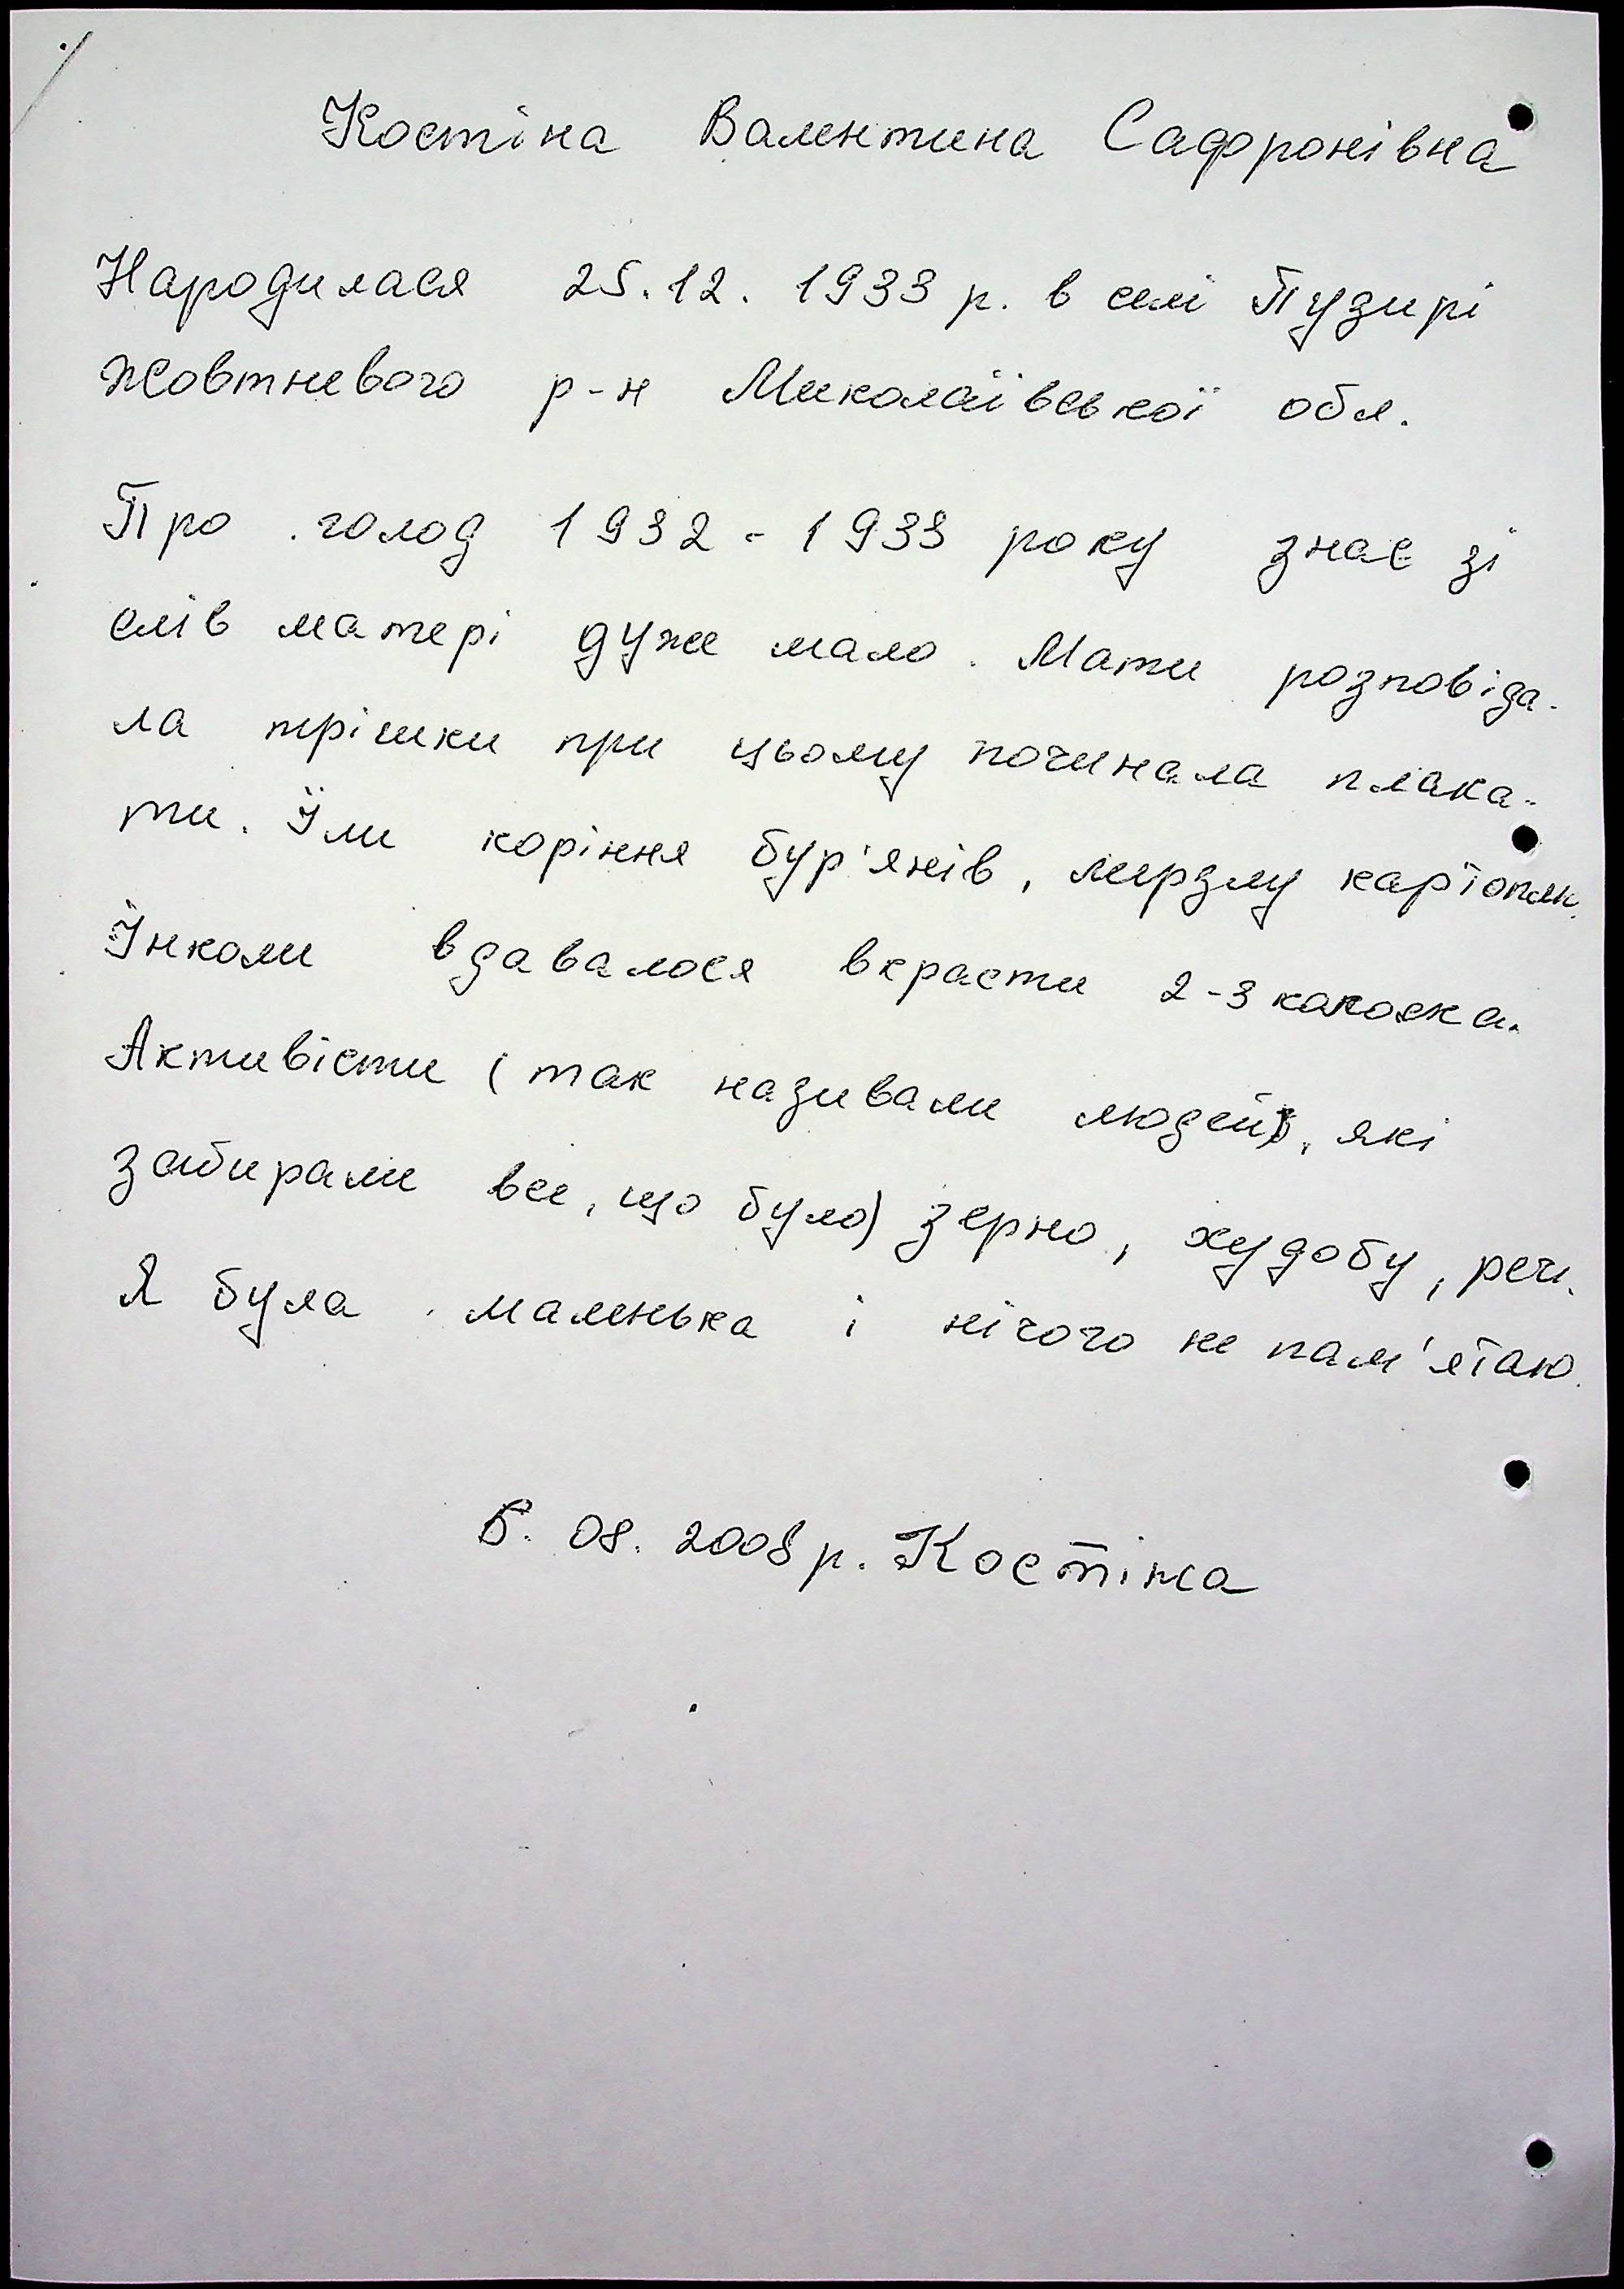 Костіна Валентина Сафронівна
Народилася 25.12.1933 р. в селі Пузирі
Жовтневого р-н Миколаївської обл.
Про голод 1932-1933 року знає зі
слів матері дуже мало. Мати розповіда-
ла трішки при цьому починала плака-
ти. Їли коріння бур'янів, мерзлу картоплю.
Інколи вдавалося вкрасти 2-3 колоска.
Активісти (так називали людей, які
забирали все, що було) зерно, худобу, речі.
Я була маленька і нічого не пам'ятаю.
6.08.2008 р. Костіна